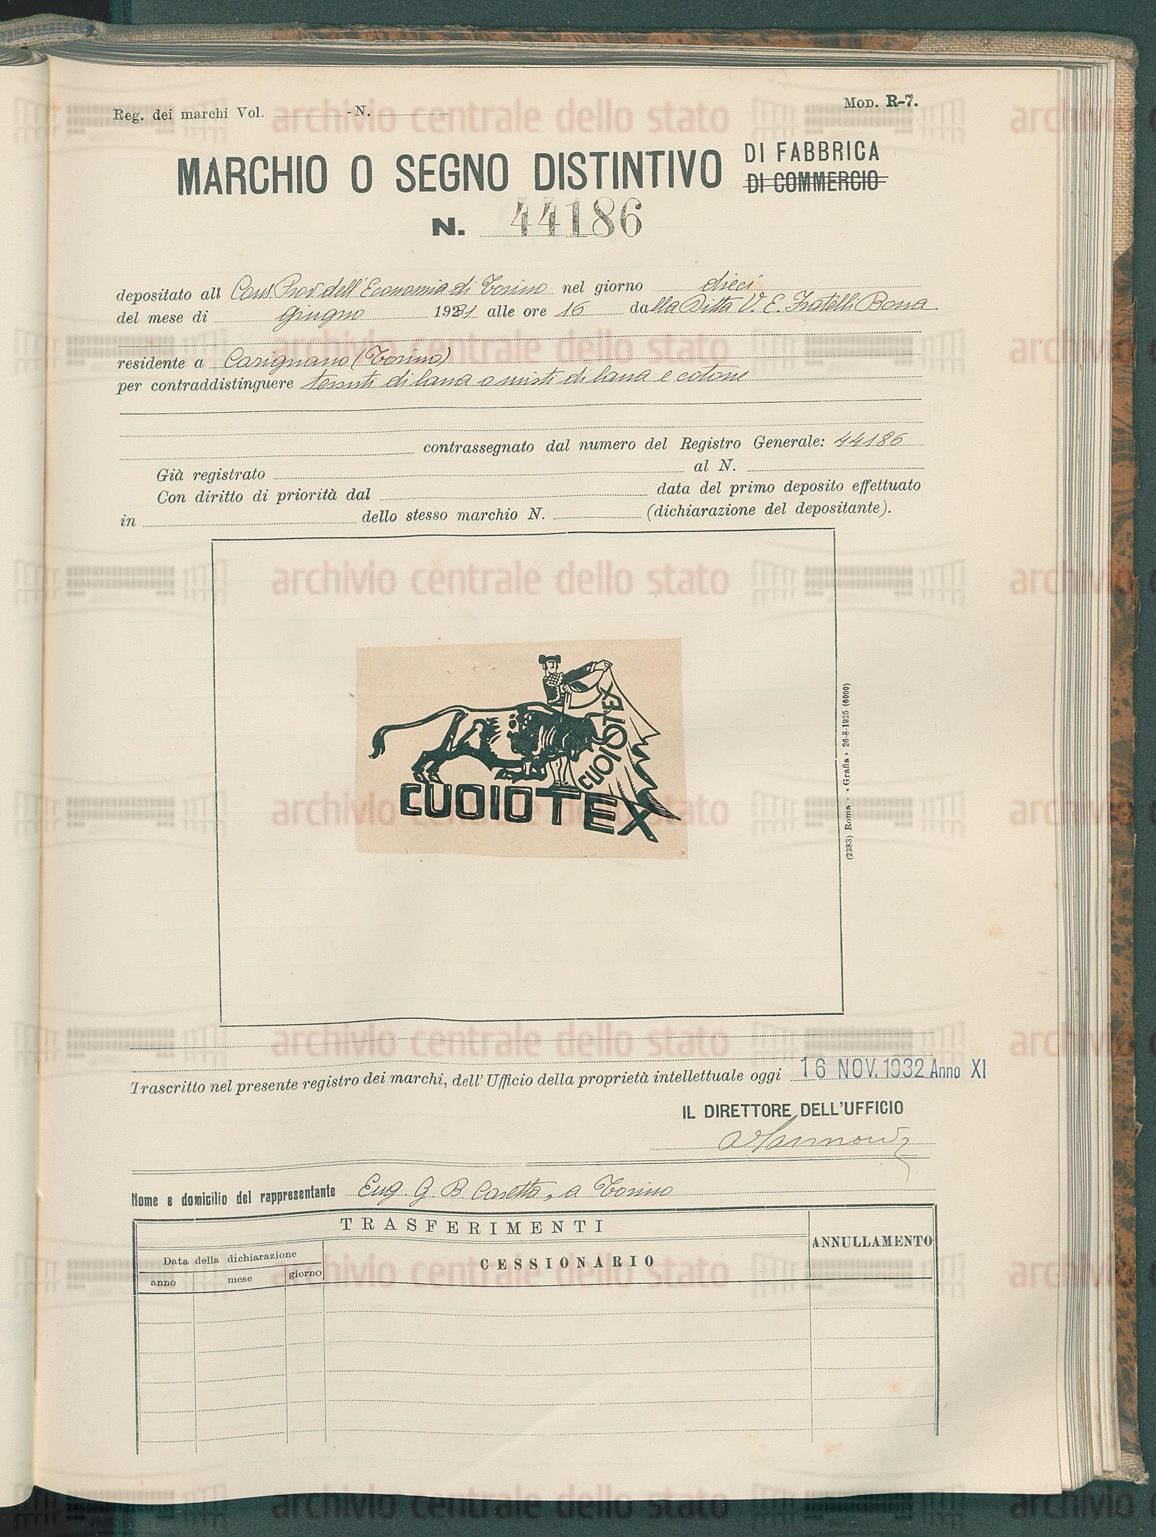 Reg. dei marchi Vol. - N.
Mod. R-7.
MARCHIO O SEGNO DISTINTIVO DI FABBRICA
DI COMMERCIO
N. 44186
depositato all Cons Prov dell'Economia di Torino nel giorno dieci
del mese di giugno 1931 alle ore 16 dalla Ditta V. E. Fratelli Bona
residente a Carignano (Torino)
per contraddistinguere tessuti di lana o misti di lana e cotone
contrassegnato dal numero del Registro Generale: 44186
Già registrato al N.
Con diritto di priorità dal data del primo deposito effettuato
in dello stesso marchio N. (dichiarazione del depositante).
CUOIOTEX
CUOIOTEX
(2383) Roma - « Grafia » 26-8-1925 (6000)
Trascritto nel presente registro dei marchi, dell'Ufficio della proprietà intellettuale oggi 16 NOV. 1932 Anno XI
IL DIRETTORE DELL'UFFICIO
Nome e domicilio del rappresentante Eug. G. B. Casetta, a Torino
TRASFERIMENTI
ANNULLAMENTO
Data della dichiarazione
CESSIONARIO
anno mese giorno
archivio centrale dello stato